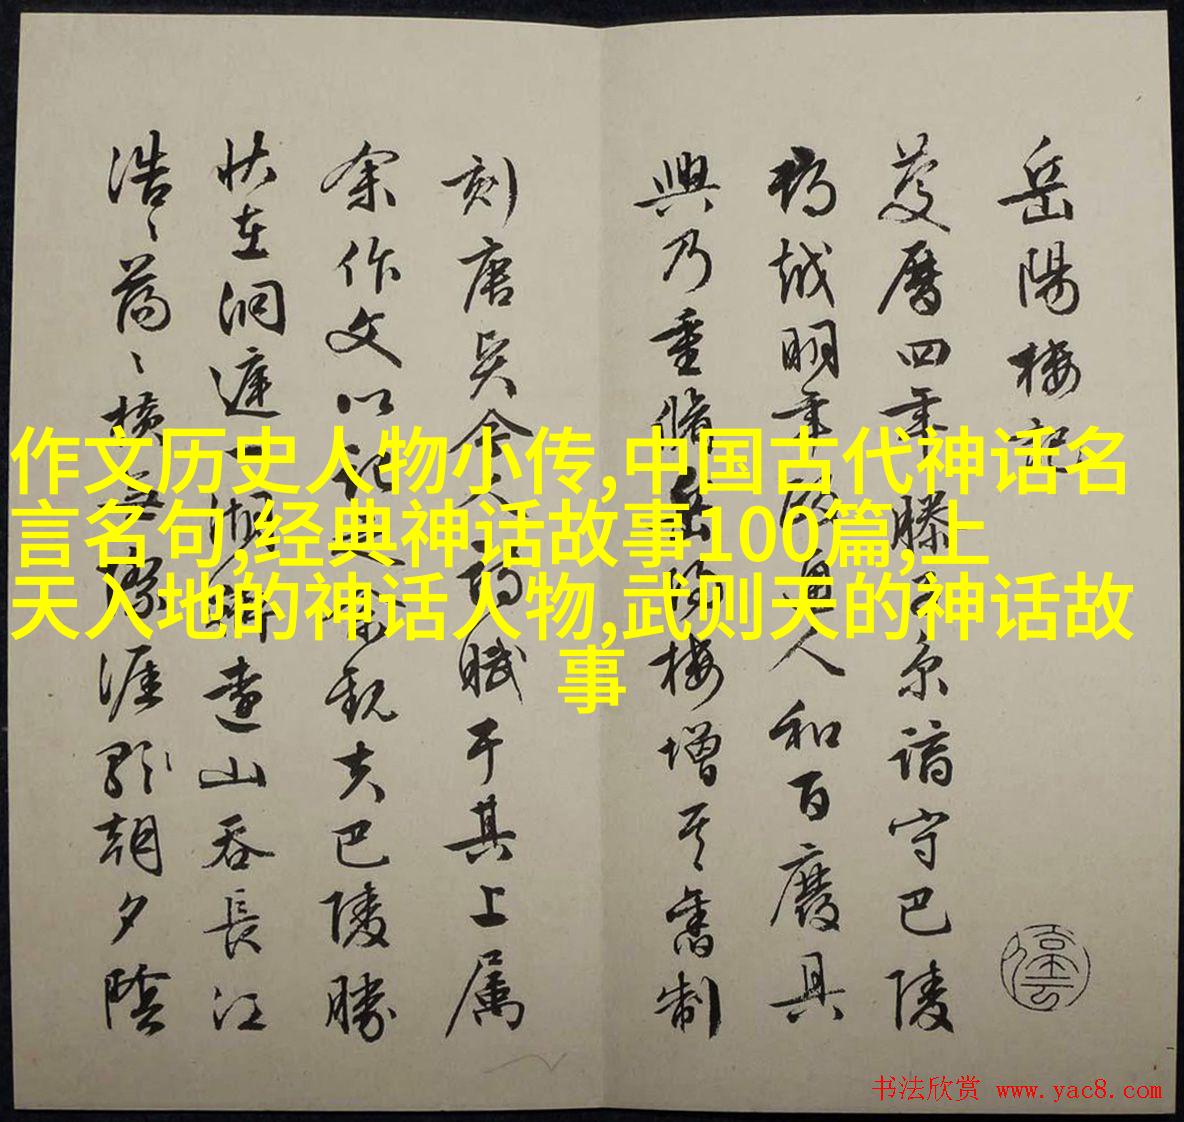 岳陽樓記
慶曆四年滕子京謫守巴陵
郡越明年政通人和百廢具
興乃重脩岳陽樓增其舊制
刻唐賢今人詩賦于其上属
余作文以記之予觀夫巴陵勝
状在洞庭一湖銜遠山吞長江
浩〻蕩〻橫無際涯朝夕陰
作文历史人物小传,中国古代神话名
言名句,经典神话故事100篇,上
天入地的神话人物,武则天的神话故
事
书法欣赏 www.yac8.com